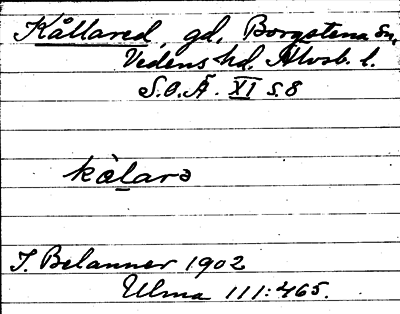 Kållared, gd, Borgstena sn,
Vedens hd. Älvsb. l.
S.O.Ä. XI s. 8
kålarə
I. Belanner 1902
Ulma 111:465.